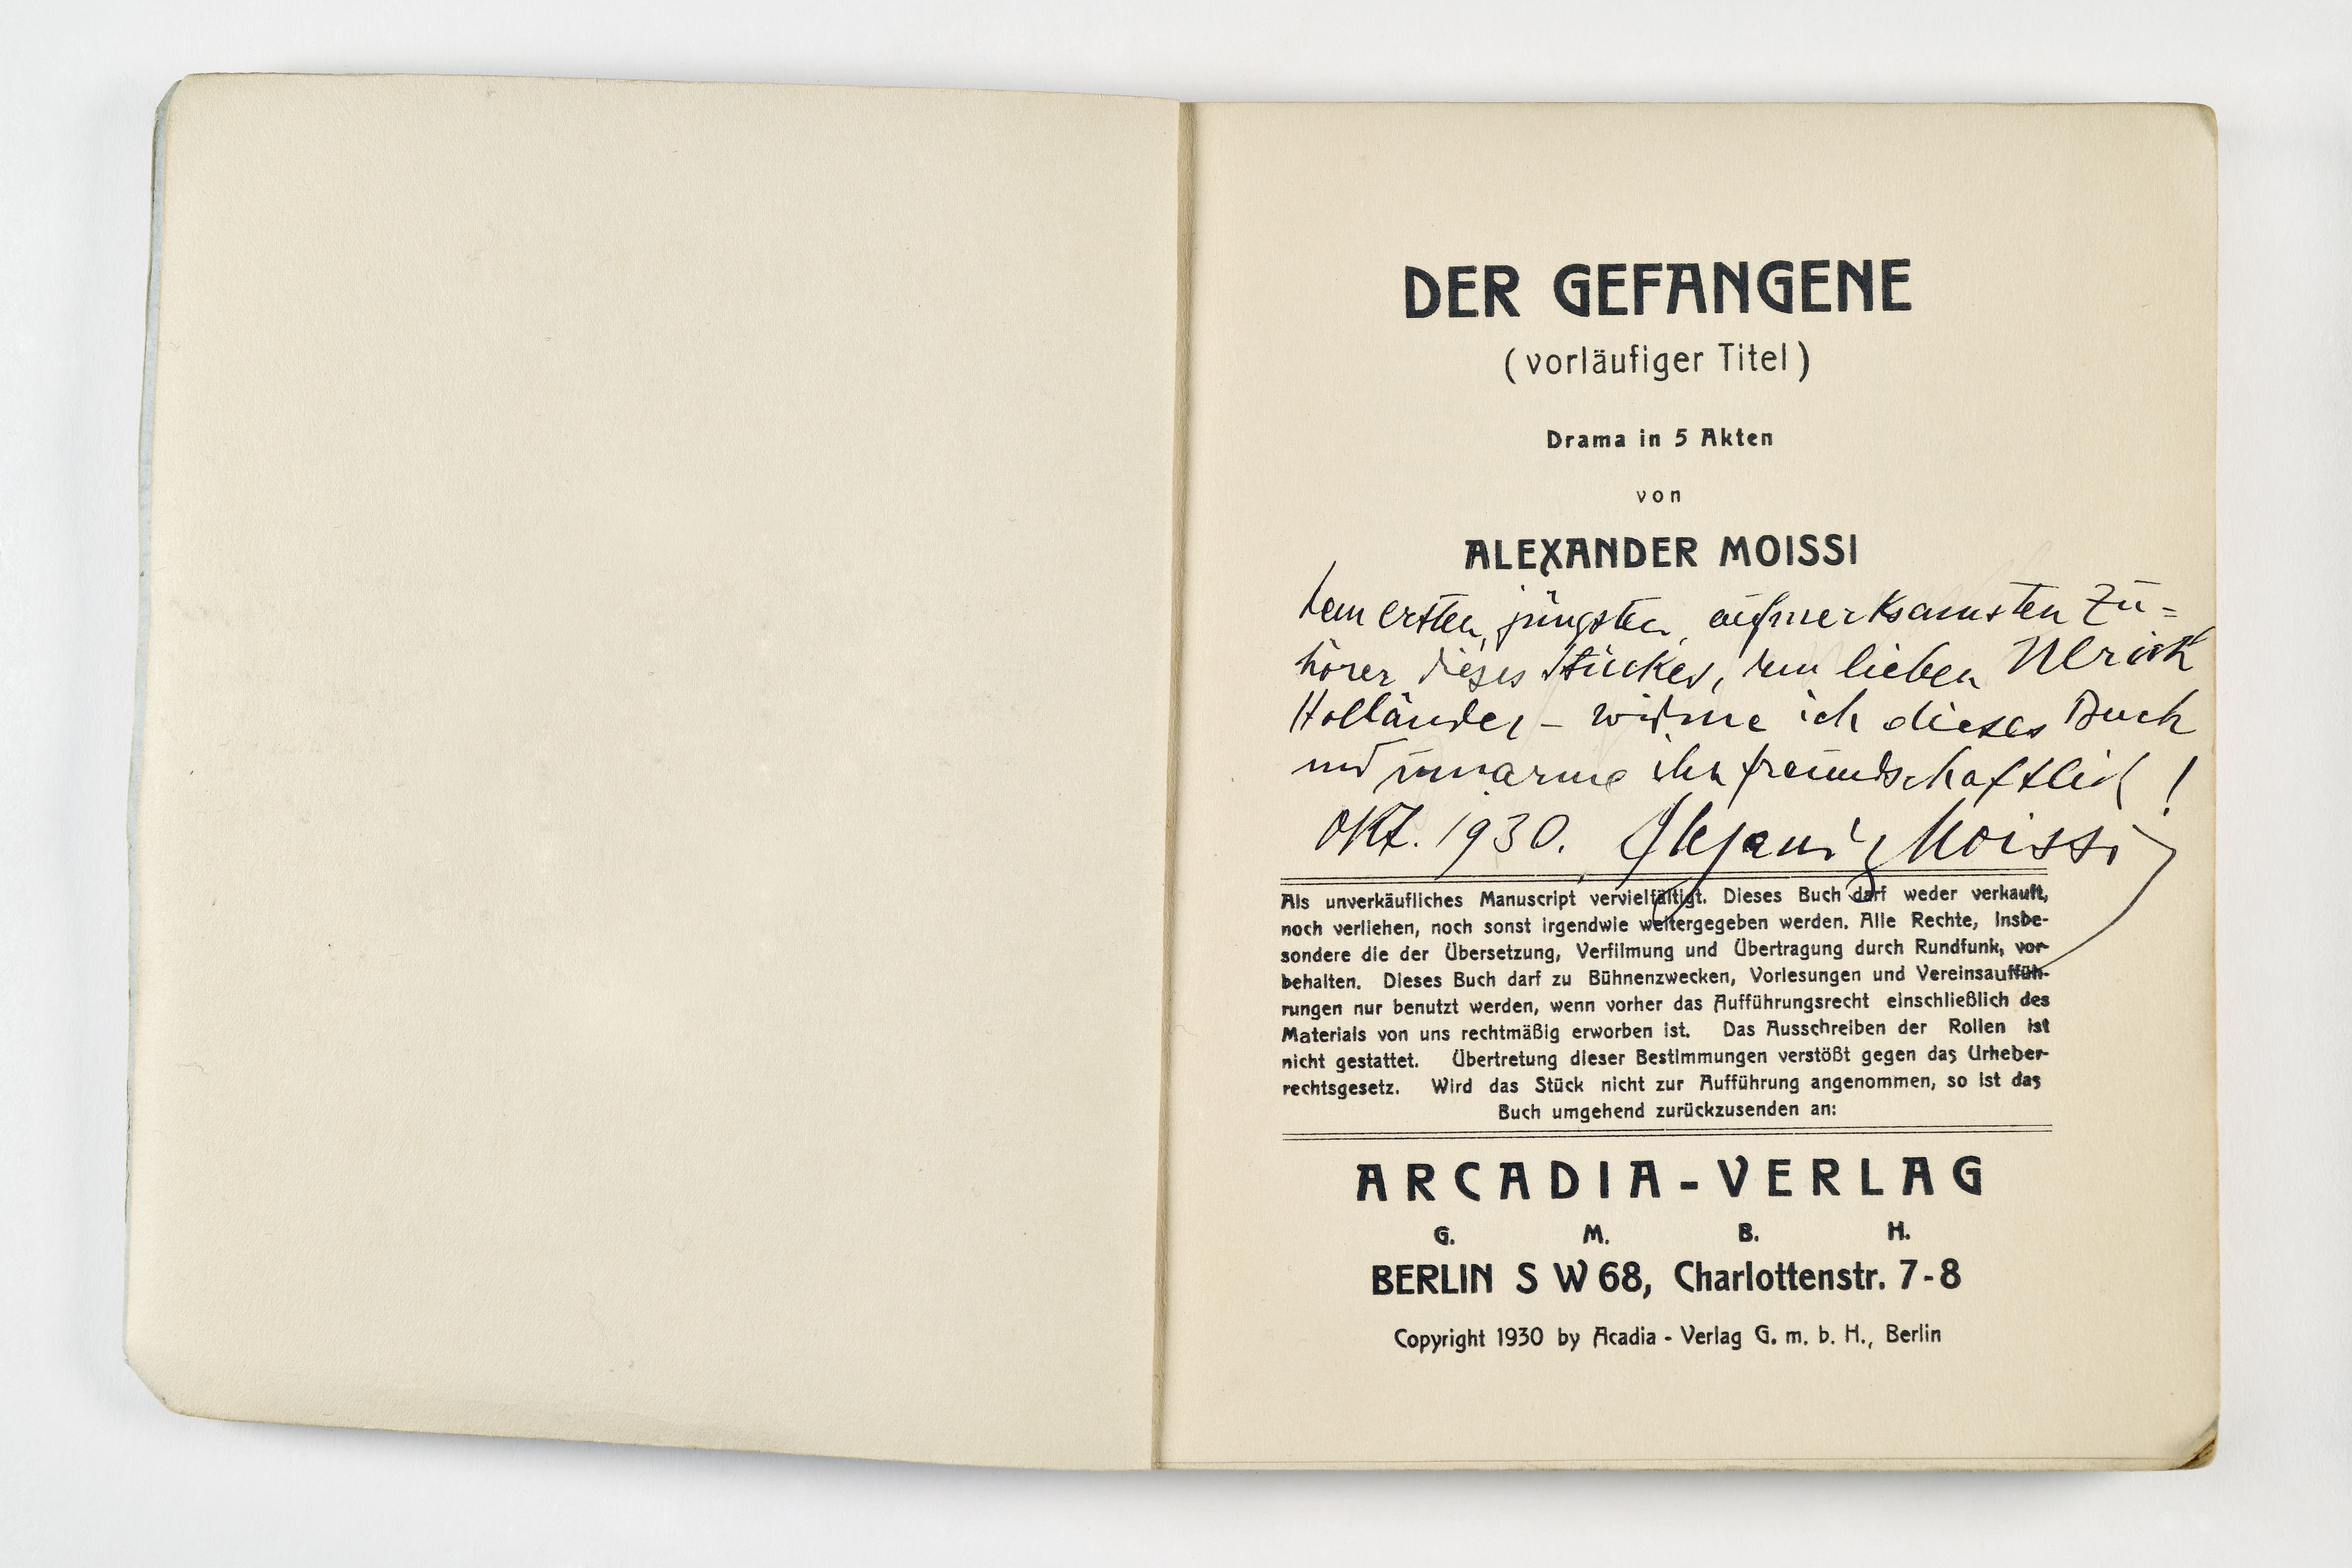 DER GEFANGENE
(vorläufiger Titel)
Drama in 5 Akten
von
ALEXANDER MOISSI
dem ersten, jüngsten, aufmerksamsten Zu=
hörer dieses Stückes, dem lieben Ulrich
Holländer – widme ich dieses Buch
und umarme ihn freundschaftlich!
Okt. 1930. Alexander Moissi
Als unverkäufliches Manuscript vervielfältigt. Dieses Buch darf weder verkauft,
noch verliehen, noch sonst irgendwie weitergegeben werden. Alle Rechte, insbe-
sondere die der Übersetzung, Verfilmung und Übertragung durch Rundfunk, vor-
behalten. Dieses Buch darf zu Bühnenzwecken, Vorlesungen und Vereinsauffüh-
rungen nur benutzt werden, wenn vorher das Aufführungsrecht einschließlich des
Materials von uns rechtmäßig erworben ist. Das Ausschreiben der Rollen ist
nicht gestattet. Übertretung dieser Bestimmungen verstößt gegen das Urheber-
rechtsgesetz. Wird das Stück nicht zur Aufführung angenommen, so ist das
Buch umgehend zurückzusenden an:
ARCADIA-VERLAG
G. M. B. H.
BERLIN S W 68, Charlottenstr. 7-8
Copyright 1930 by Acadia - Verlag G. m. b. H., Berlin